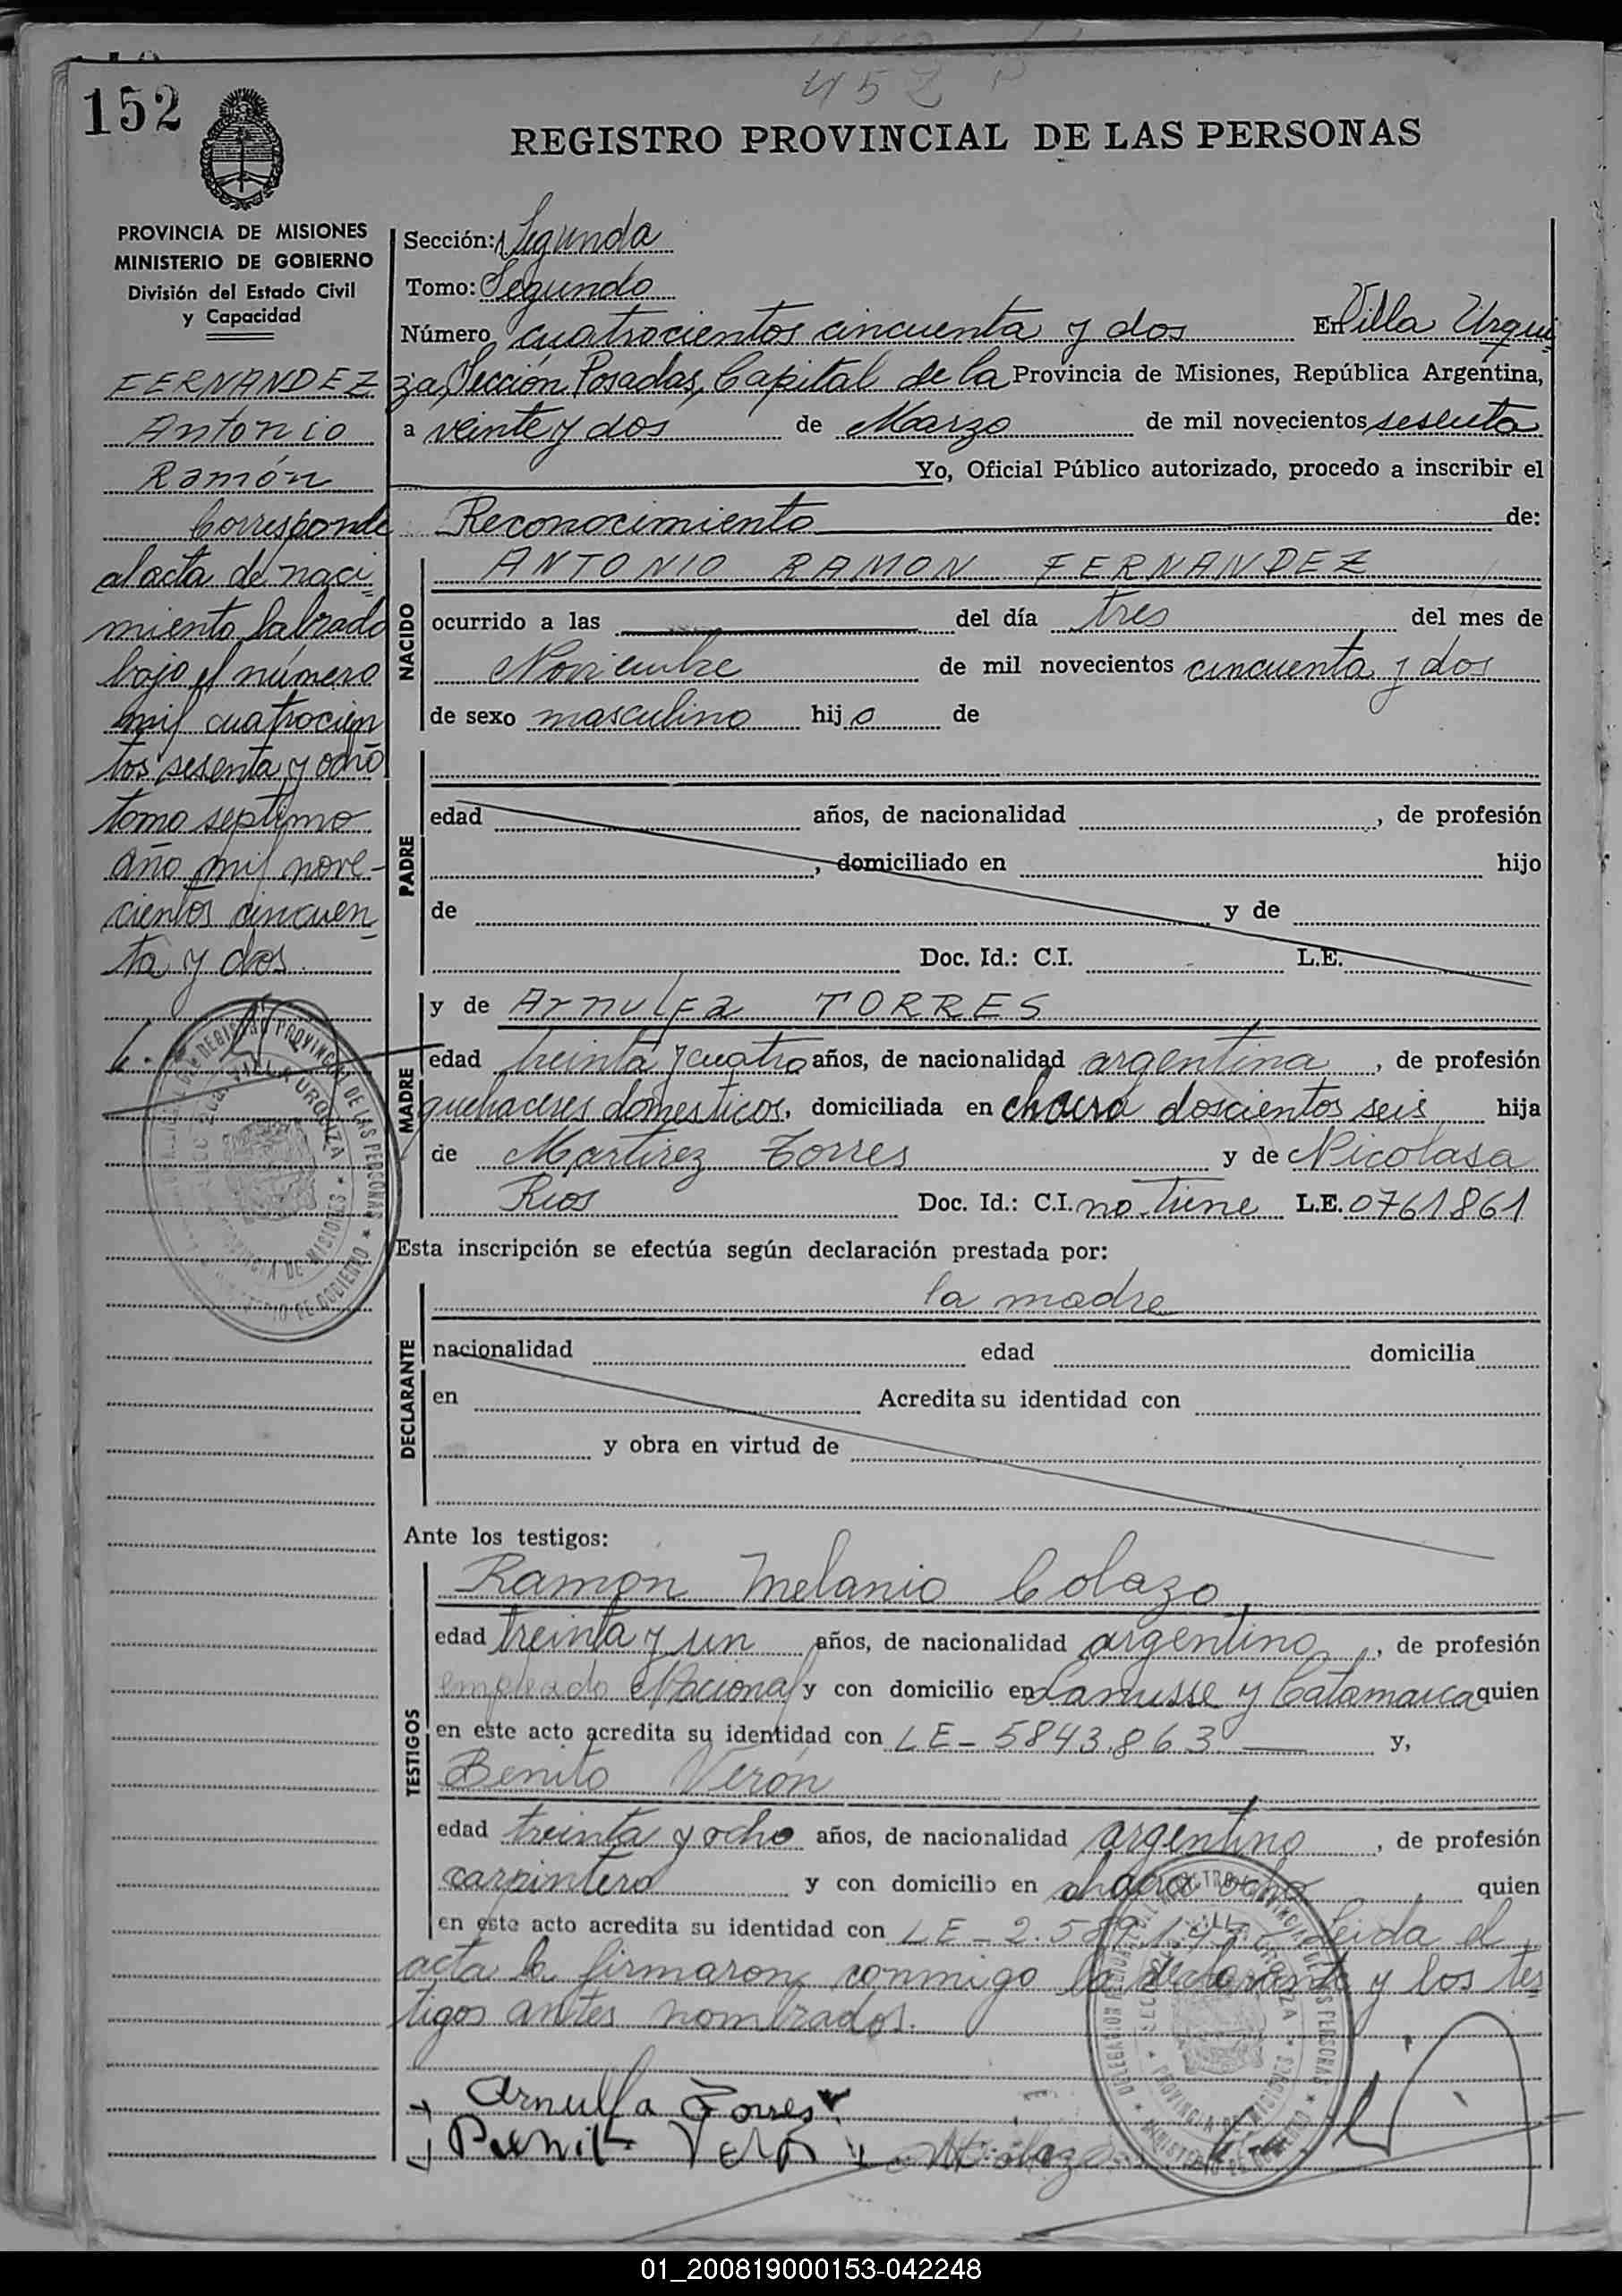 452
152
REGISTRO PROVINCIAL DE LAS PERSONAS
PROVINCIA DE MISIONES
MINISTERIO DE GOBIERNO
División del Estado Civil
y Capacidad
FERNANDEZ
Antonio
Ramón
Corresponde
al acta de naci
miento labrado
bajo el número
mil cuatrocien
tos sesenta y ocho
tomo septimo
año mil nove-
cientos cincuen
ta y dos
Sección: Segunda
Tomo: Segundo
Número cuatrocientos cincuenta y dos En Villa Urqui
za, Sección Posadas, Capital de la Provincia de Misiones, República Argentina,
a veinte y dos de Marzo de mil novecientos sesenta
Yo, Oficial Público autorizado, procedo a inscribir el
Reconocimiento de:
NACIDO
ANTONIO RAMON FERNANDEZ
ocurrido a las del día tres del mes de
Noviembre de mil novecientos cincuenta y dos
de sexo masculino hijo de
PADRE
edad años, de nacionalidad , de profesión
, domiciliado en hijo
de y de
Doc. Id.: C.I. L.E.
MADRE
y de Arnulfa TORRES
edad treinta y cuatro años, de nacionalidad argentina, de profesión
quehaceres domesticos, domiciliada en chacra doscientos seis hija
de Martirez Torres y de Nicolasa
Rios Doc. Id.: C.I. no tiene L.E. 0761861
Esta inscripción se efectúa según declaración prestada por:
DECLARANTE
la madre
nacionalidad edad domicilia
en Acredita su identidad con
y obra en virtud de
Ante los testigos:
TESTIGOS
Ramon Melanio Colazo
edad treinta y un años, de nacionalidad argentino, de profesión
empleado Nacional y con domicilio en Lanusse y Catamarca quien
en este acto acredita su identidad con LE - 5843.863 y,
Benito Verón
edad treinta y ocho años, de nacionalidad argentino, de profesión
carpintero y con domicilio en chacra ocho quien
en este acto acredita su identidad con LE - Leida el
acta la firmaron conmigo la declarante y los tes
tigos antes nombrados.
Arnulfa Torres
REGISTRO PROVINCIAL DE LAS PERSONAS
VILLA URQUIZA
PROVINCIA DE MISIONES
MINISTERIO DE GOBIERNO
01_200819000153-042248